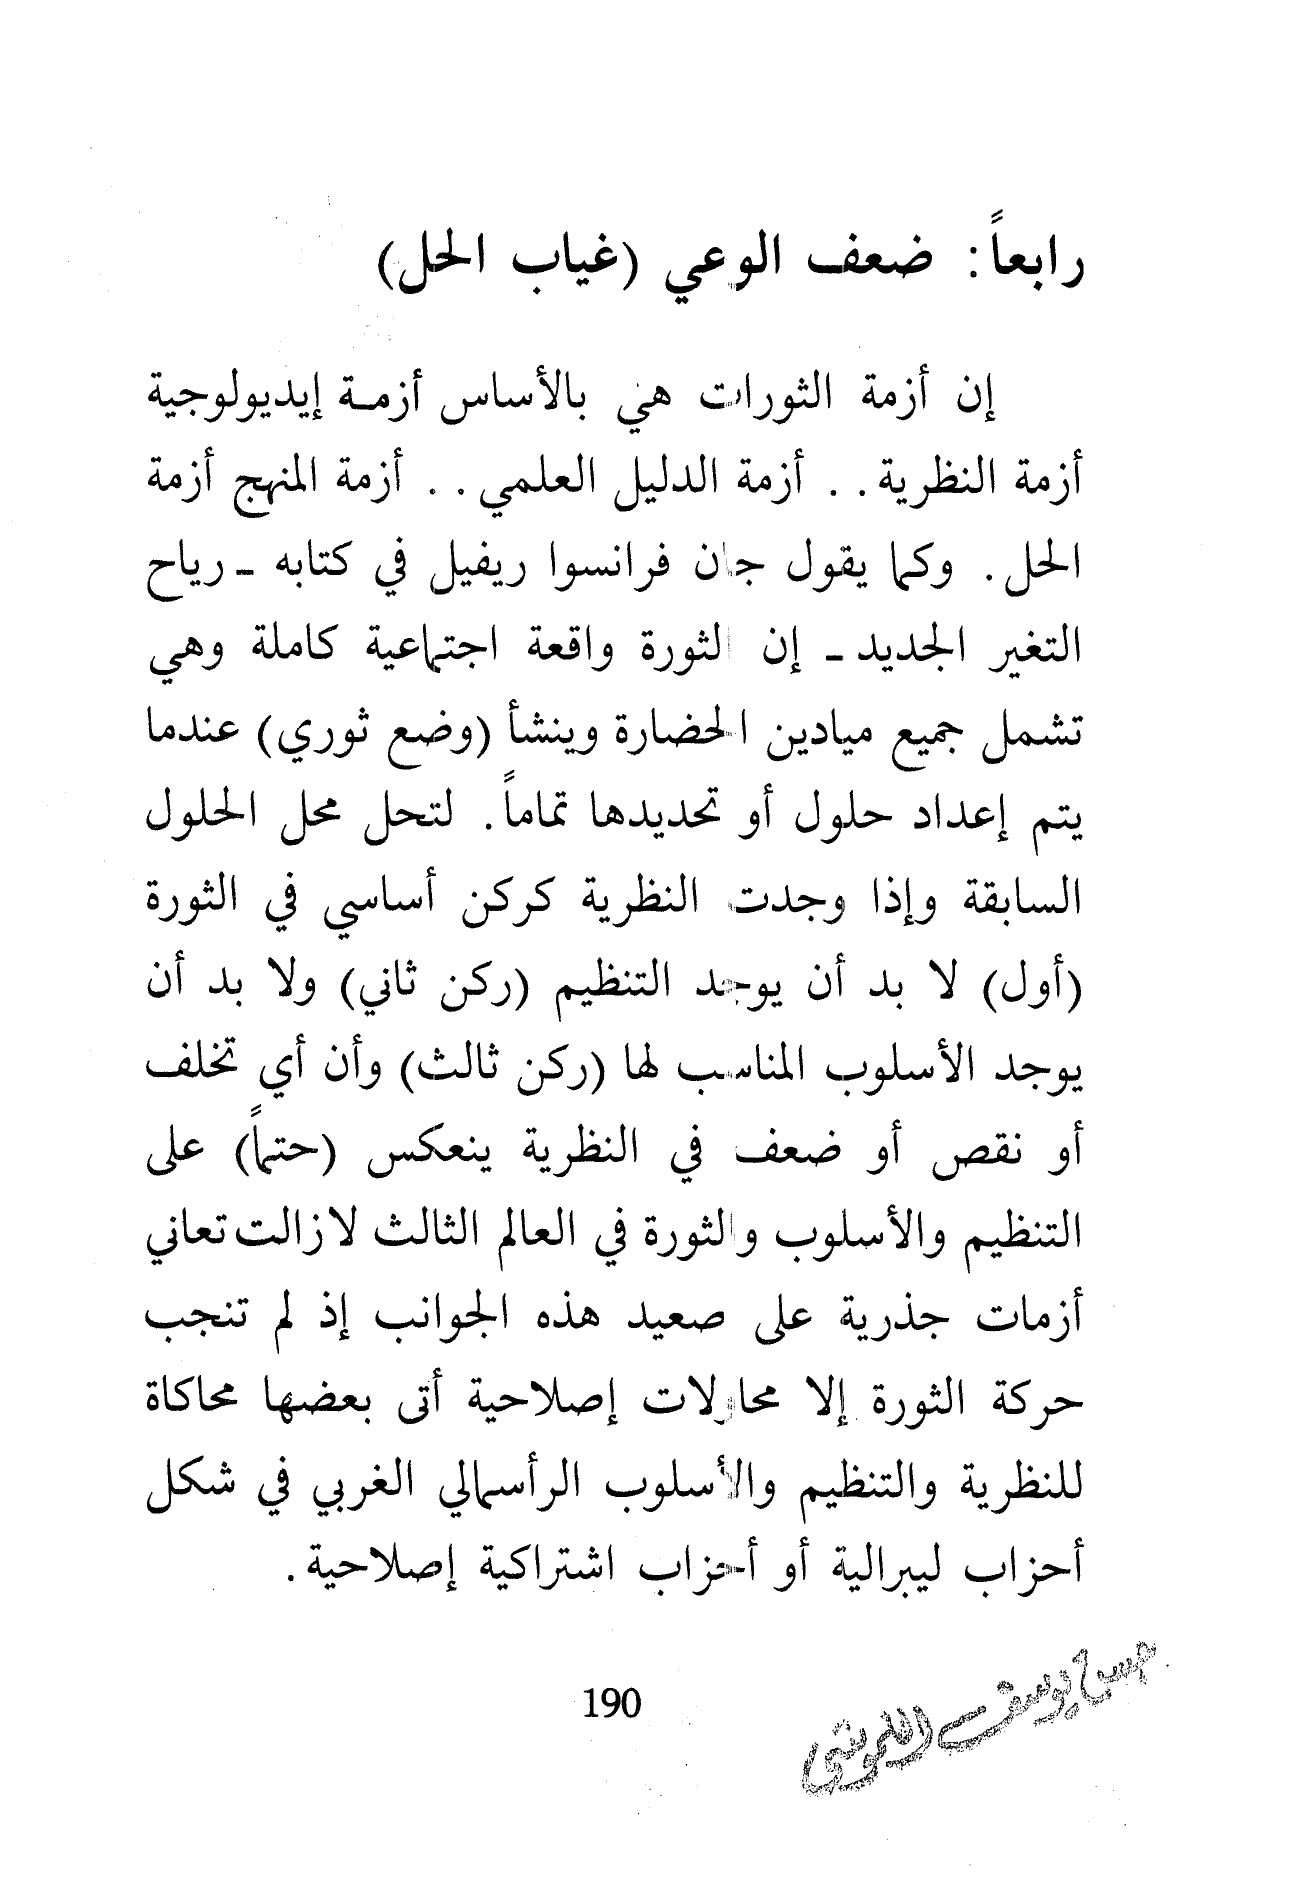 رابعاً: ضعف الوعي (غياب الحل)
إن أزمة الثورات هي بالأساس أزمة إيديولوجية
أزمة النظرية . . أزمة الدليل العلمي . . أزمة المنهج أزمة
الحل . وكما يقول جان فرانسوا ريفيل في كتابه ـ رياح
التغير الجديد ـ إن الثورة واقعة اجتماعية كاملة وهي
تشمل جميع ميادين الحضارة وينشأ (وضع ثوري) عندما
يتم إعداد حلول أو تحديدها تماماً . لتحل محل الحلول
السابقة وإذا وجدت النظرية كركن أساسي في الثورة
(أول) لا بد أن يوجد التنظيم (ركن ثاني) ولا بد أن
يوجد الأسلوب المناسب لها (ركن ثالث) وأن أي تخلف
أو نقص أو ضعف في النظرية ينعكس (حتماً) على
التنظيم والأسلوب والثورة في العالم الثالث لازالت تعاني
أزمات جذرية على صعيد هذه الجوانب إذ لم تنجب
حركة الثورة إلا محاولات إصلاحية أتى بعضها محاكاة
للنظرية والتنظيم والأسلوب الرأسمالي الغربي في شكل
أحزاب ليبرالية أو أحزاب اشتراكية إصلاحية .
190
يوسف